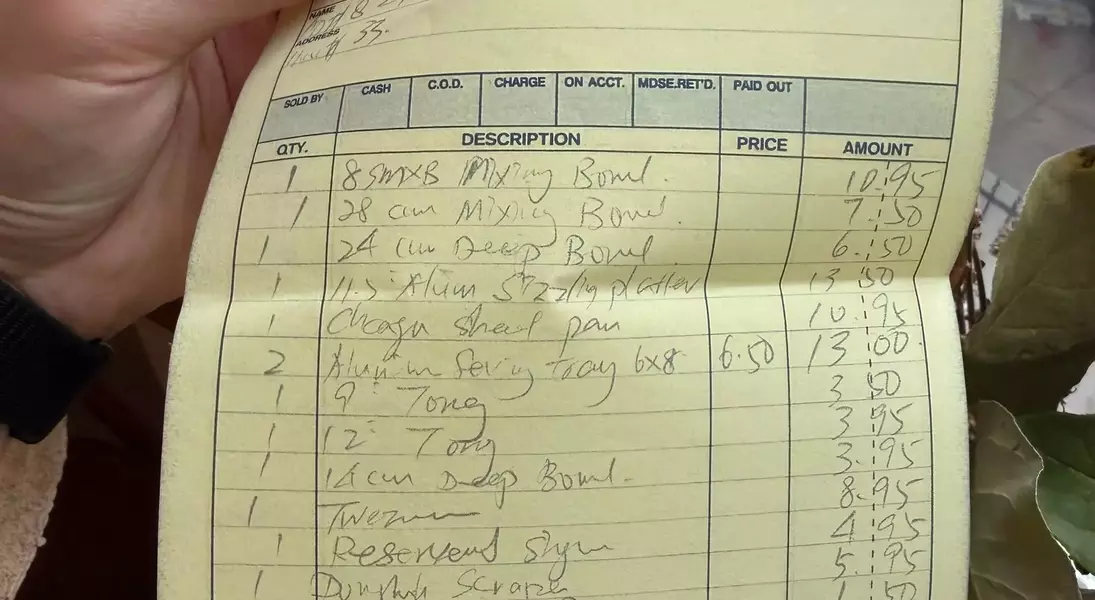 NAME
ADDRESS 33.
SOLD BY CASH C.O.D. CHARGE ON ACCT. MDSE.RET'D. PAID OUT
QTY. DESCRIPTION PRICE AMOUNT
1 Mixing Bowl. 10.95
1 28 cm Mixing Bowl. 7.50
1 24 cm Deep Bowl 6.50
1 11.5" Alum Sizzling platter 13 50
1 sheet pan 10.95
2 Aluminum Serving tray 6x8 6.50 13 00
1 9" Tong 3 50
1 12" Tong 3 95
1 14 cm Deep Bowl. 3.95
1 8.95
1 Reserved Sign 4.95
1 Scraper 5.95
1 50